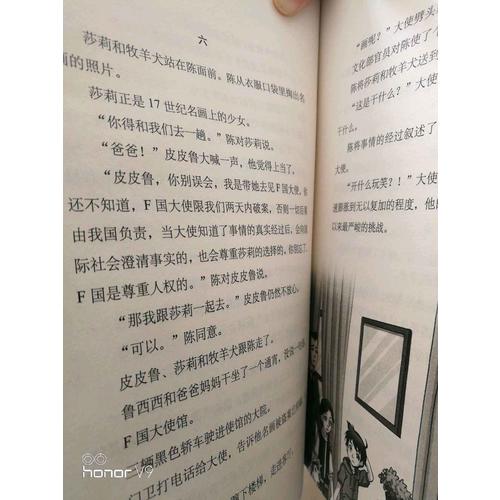 六
莎莉和牧羊犬站在陈面前。陈从衣服口袋里掏出名
画的照片。
莎莉正是17世纪名画上的少女。
“你得和我们去一趟。”陈对莎莉说。
“爸爸！”皮皮鲁大喊一声，他觉得上当了。
“皮皮鲁，你别误会，我是带她去见F国大使。你
还不知道，F国大使限我们两天内破案，否则一切后果
由我国负责，当大使知道了事情的真实经过后，会向国
际社会澄清事实的，也会尊重莎莉的选择的，你别忘了，
F国是尊重人权的。”陈对皮皮鲁说。
“那我跟莎莉一起去。”皮皮鲁仍然不放心。
“可以。”陈同意。
皮皮鲁、莎莉和牧羊犬跟陈走了。
鲁西西和爸爸妈妈干坐了一个通宵，
F国大使馆。
一辆黑色轿车驶进使馆的大院。
门卫打电话给大使，告诉他名画被
下楼梯，走进
“画呢？”大使劈头
文化部官员对陈使了个
陈将莎莉和牧羊犬送到
“这是干什么？”大使
干什么。
陈将事情的经过叙述了
大使。
“开什么玩笑？！”大使
速膨胀到无以复加的程度，他
以来最严峻的挑战。
honor V9